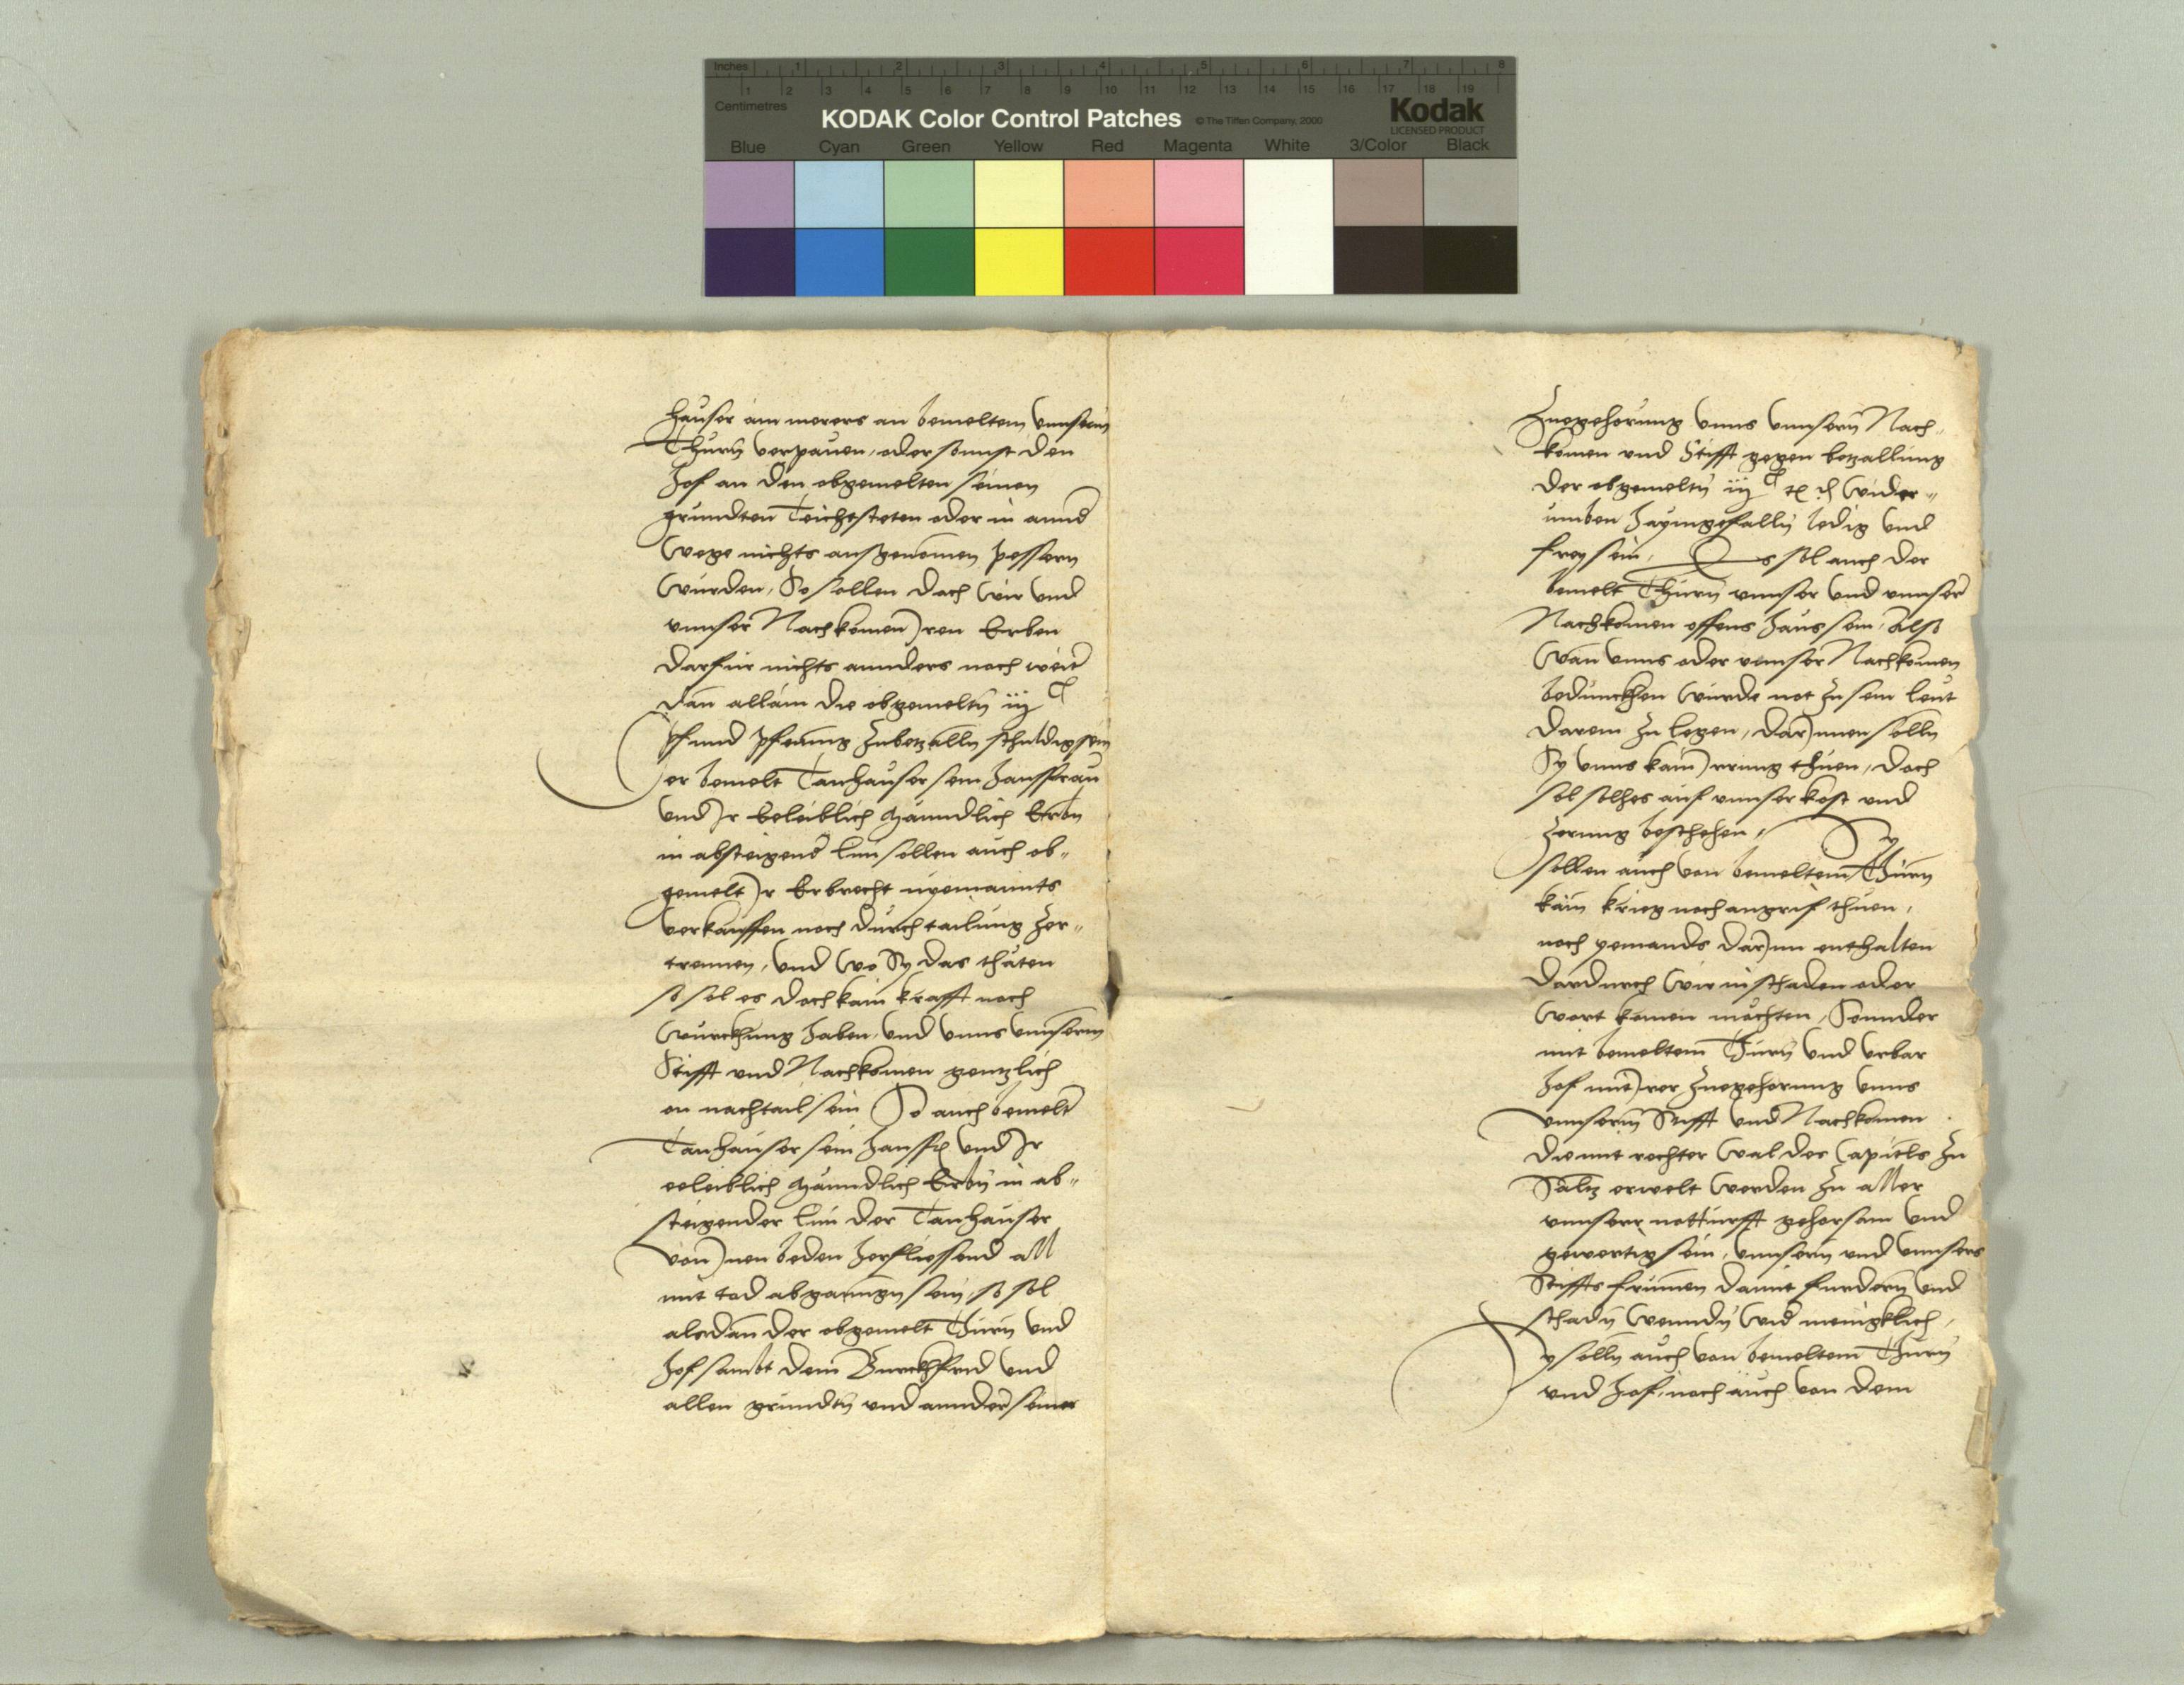 Inches 1 2 3 4 5 6 7 8
1 2 3 4 5 6 7 8 9 10 11 12 13 14 15 16 17 18 19
Centimetres
KODAK Color Control Patches © The Tiffen Company, 2000 Kodak
LICENSED PRODUCT
Blue Cyan Green Yellow Red Magenta White 3/Color Black
hauser ain merers an bemeltem unnserm
Thurn verpauen, oder sonnst den
Hof an den obgemelten seinen
grundten Teichtsteten oder in annd
wege nichts ausgenomen pessern
wurden, So sollen doch wir und
unnser Nachkomen Iren Erben
darfur nichts annders noch weit
dan allain die obgemeltn iij C
Pfund Pfenning zubezalln schuldig sein
er bemelt Tanhauser sein Hausfrau
und Ir eeleiblich Manndlich Erbn
in absteigend linj sollen auch ob„
gemelt Ir Erbrecht nyemannts
verkauffen noch durch tailung zer„
trennen, und wo Sy das thäten
so sol es doch kain krafft noch
würckhung haben, und unns unnserm
Stifft und Nachkomen gentzlich
on nachtail sein So auch bemelt
Tanhauser sein Hausfr und Ir
eeleiblich Manndlich Erbn in ab„
steigender linj der Tanhauser
von Inen beden herfliessend all
mit tod abganngn sein, so sol
alsdan der obgemelt Thurn und
Hof sambt dem Burckhfrid und
allen grundtn und annder seiner
Zuegehorung unns unnsern Nach„
komen und Stifft gegen betzallung
der obgemeltn iij C wider„
umben haymgefalln ledig und
frey sein, Es sol auch der
bemelt Thurn unnser und unnser
Nachkomen offens Haus sein, Also
wan unns oder unnser Nachkomen
bedunckhen wurde not zu sein leut
darein zu legen, dar Innen solln
Sy unns kain Irrung thuen, doch
sol solhes auf unnser kost und
zerung beschehen, Sy
sollen auch von bemeltem Thurn
kain krieg noch angrif thuen,
noch yemands dar Inn enthalten
dardurch wir in schaden oder
wort komen möchten, Sonnder
mit bemeltem Thurn und urbar
Hof mit Irer Zuegehorung unns
unnserm Stifft und Nachkomen
die mit rechter wal des Capitls zu
Saltz erwelt werden zu aller
unnserr notturfft gehorsam und
gewertig sein, unnsern und unnsers
Stiffts frumen damit furdern und
schadn wenndn wid menigklich,
Sy solln auch von bemeltem Thurn
und Hof, noch auch von dem